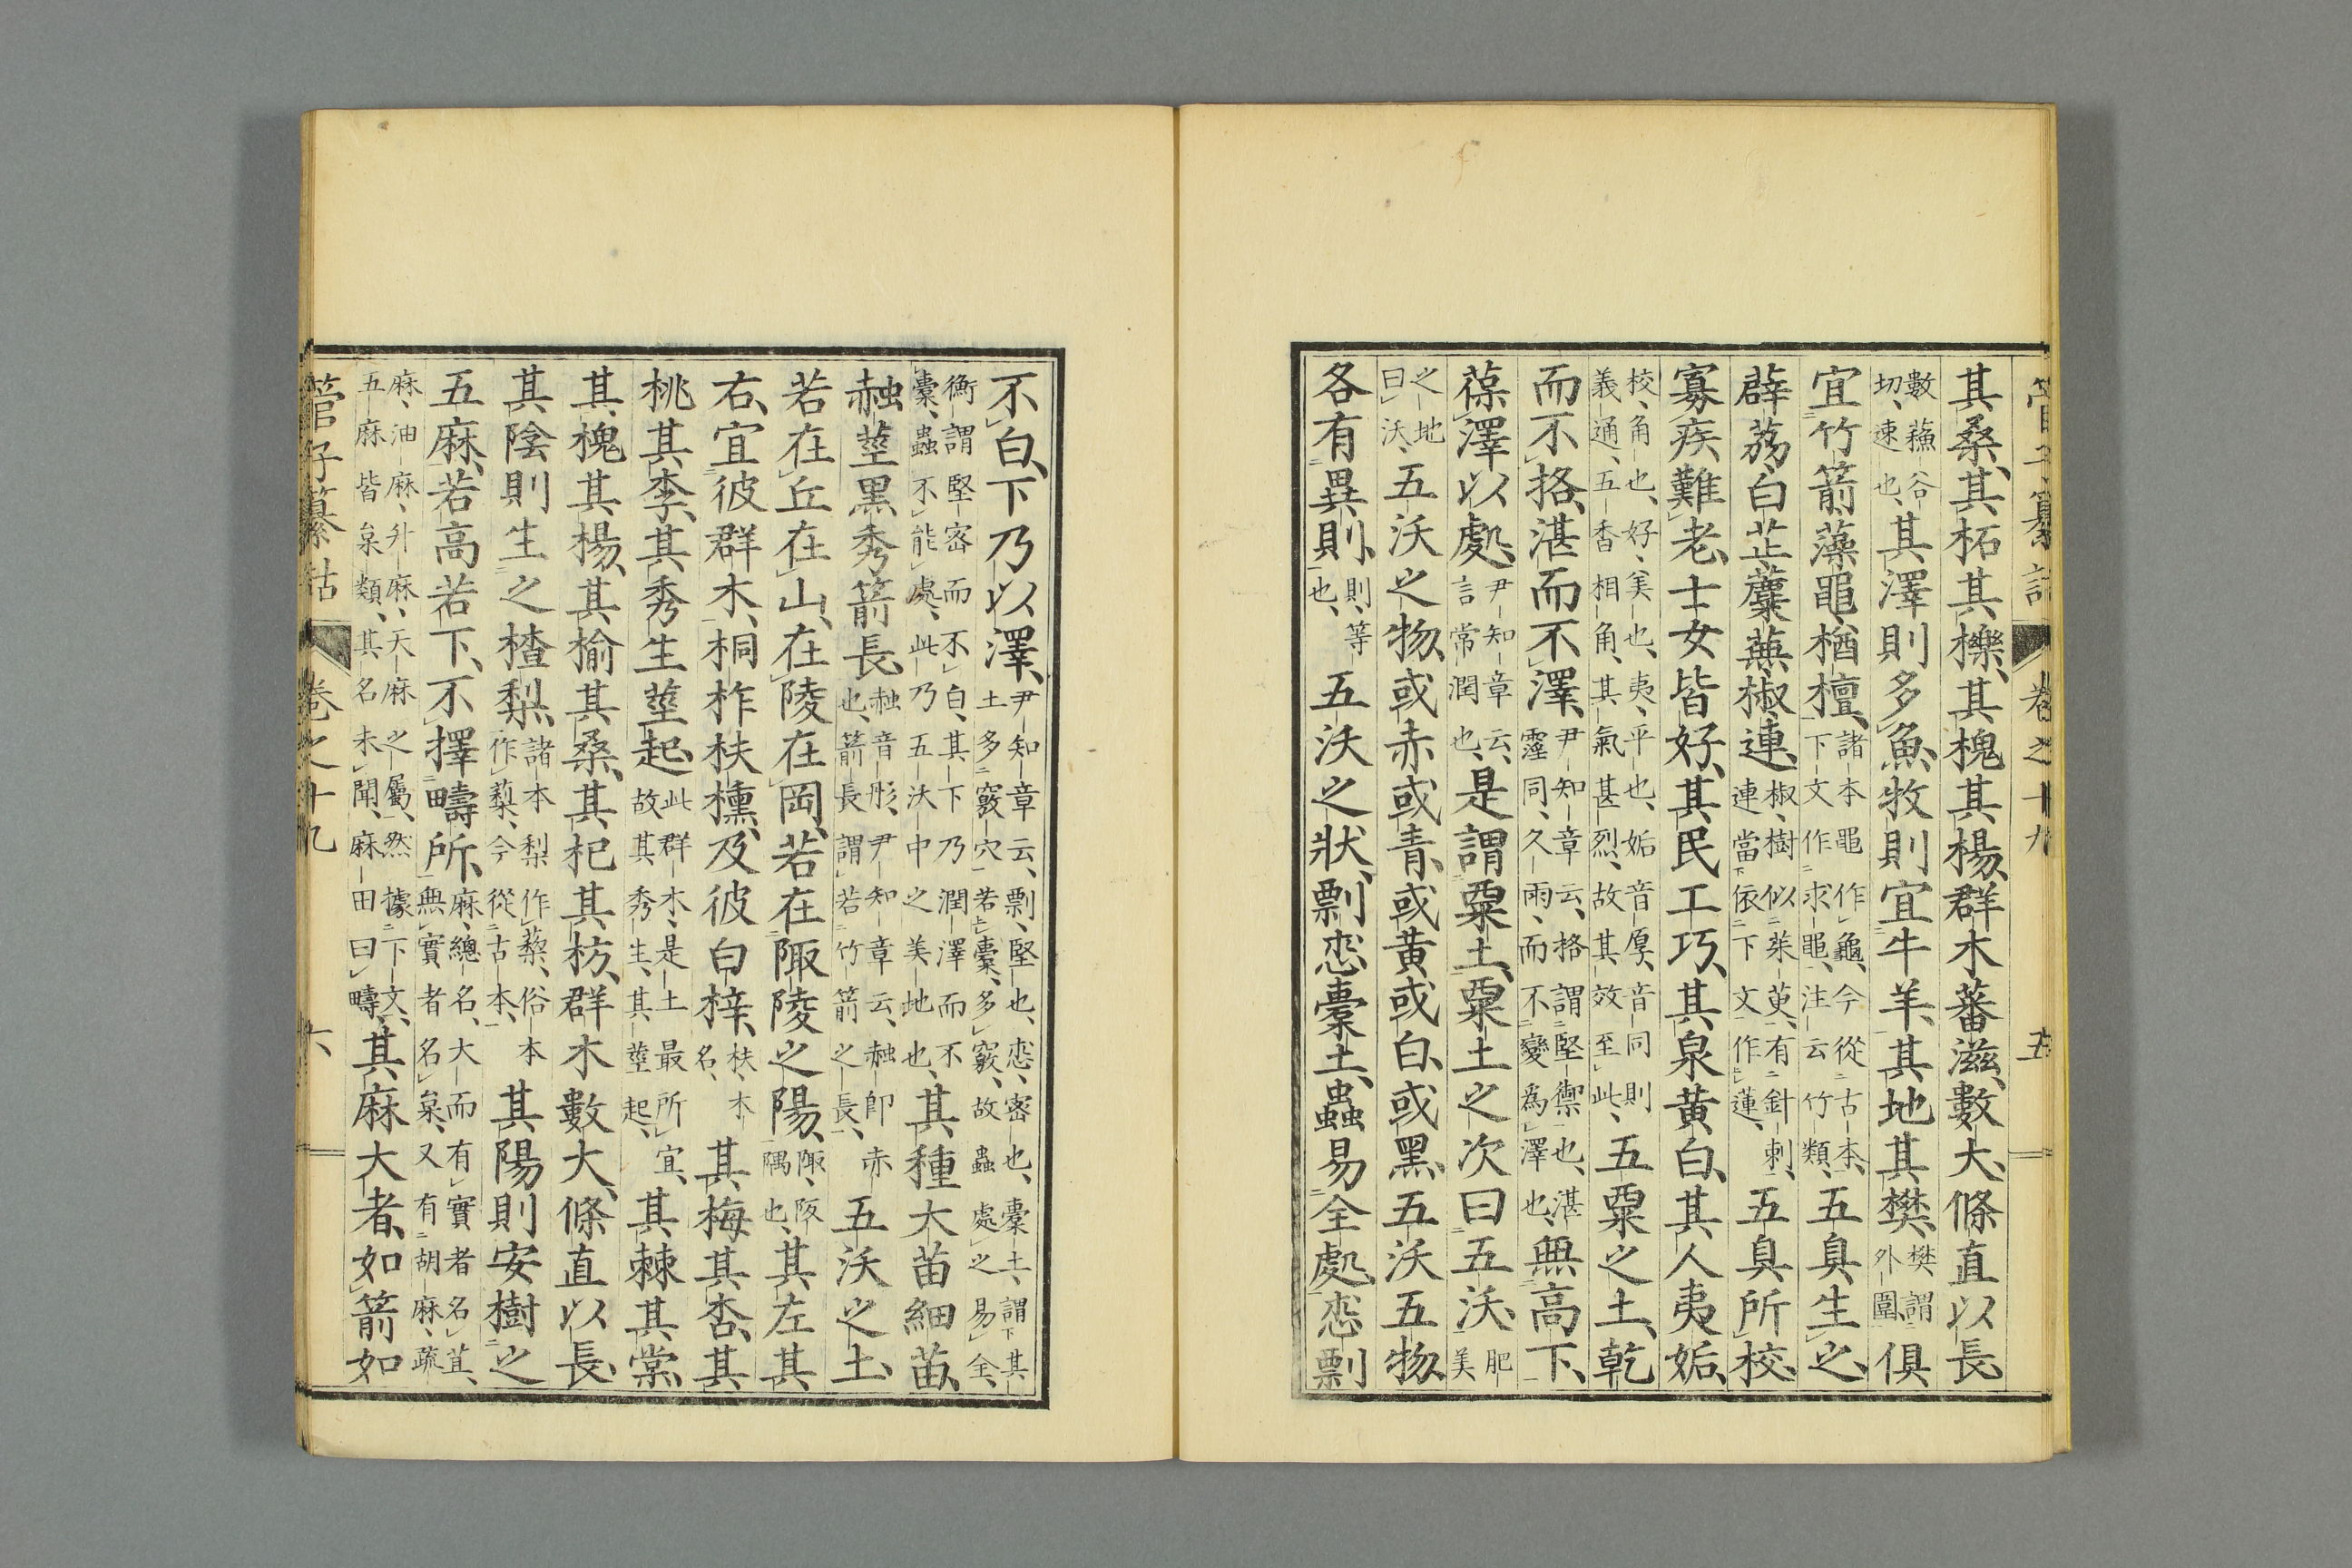 管子纂詁 卷之十九 五
其桑、其柘其櫟、其槐其楊、群木蕃滋、數大、條直以長
數蘓谷切、速也、其澤則多魚、牧則宜牛羊、其地其樊、樊謂外圍、俱
宜竹箭藻黽、楢檀、諸本黽作龜、今從古本、下文作求黽、注云竹類、五臭生之、
薜荔、白芷蘪蕪、椒連、椒樹似茱萸、有針刺、連當依下文作蓮、五臭所校、
寡疾難老、士女皆好、其民工巧、其泉黄白、其人夷姤、
校、角也、好、美也、夷、平也、姤音厚、音同則義通、五香相角、其氣甚烈、故其效至此、五粟之土、乾
而不挌、湛而不澤、尹知章云、格謂堅禦也、湛霪同、久雨、而不變爲澤也、無高下、
葆澤以處、尹知章云、言常潤也、是謂粟土、粟土之次曰五沃、肥美
之地曰沃、五沃之物、或赤或青、或黄或白、或黑、五沃五物、
各有異則、則、等也、五沃之狀、剽怷橐土、蟲易全處、怷剽
不白、下乃以澤、尹知章云、剽、堅也、怷、密也、橐土、謂其土多竅穴若橐、多竅、故蟲處之易全、
衡謂堅密而不白、其下乃潤澤而不橐、蟲不能處、此乃五沃中之美地也、其種大苗細苗、
赨莖黑秀箭長、赨音彤、尹知章云、赨即赤也、箭長謂若竹箭之長、五沃之土、
若在丘在山、在陵在岡、若在陬陵之陽、陬、阪隅也、其左其
右、宜彼群木、桐柞枎櫄、及彼白梓、枎、木名、其梅其杏、其
桃其李、其秀生莖起、此群木、是土最所宜、故其秀生、其莖起、其棘其棠、
其槐其楊、其榆其桑、其杞其枋、群木數大、條直以長、
其陰則生之楂棃、諸本梨作藜、俗本作藜、今從古本、其陽則安樹之
五麻、若高若下、不擇疇所、麻、總名、大而有實者名苴、無實者名枲、又有胡麻、疏
麻、油麻、升麻、天麻之屬、然據下文、五麻皆枲類、其名未聞、麻田曰疇、其麻大者、如箭如
管子纂詁 卷之十九 六